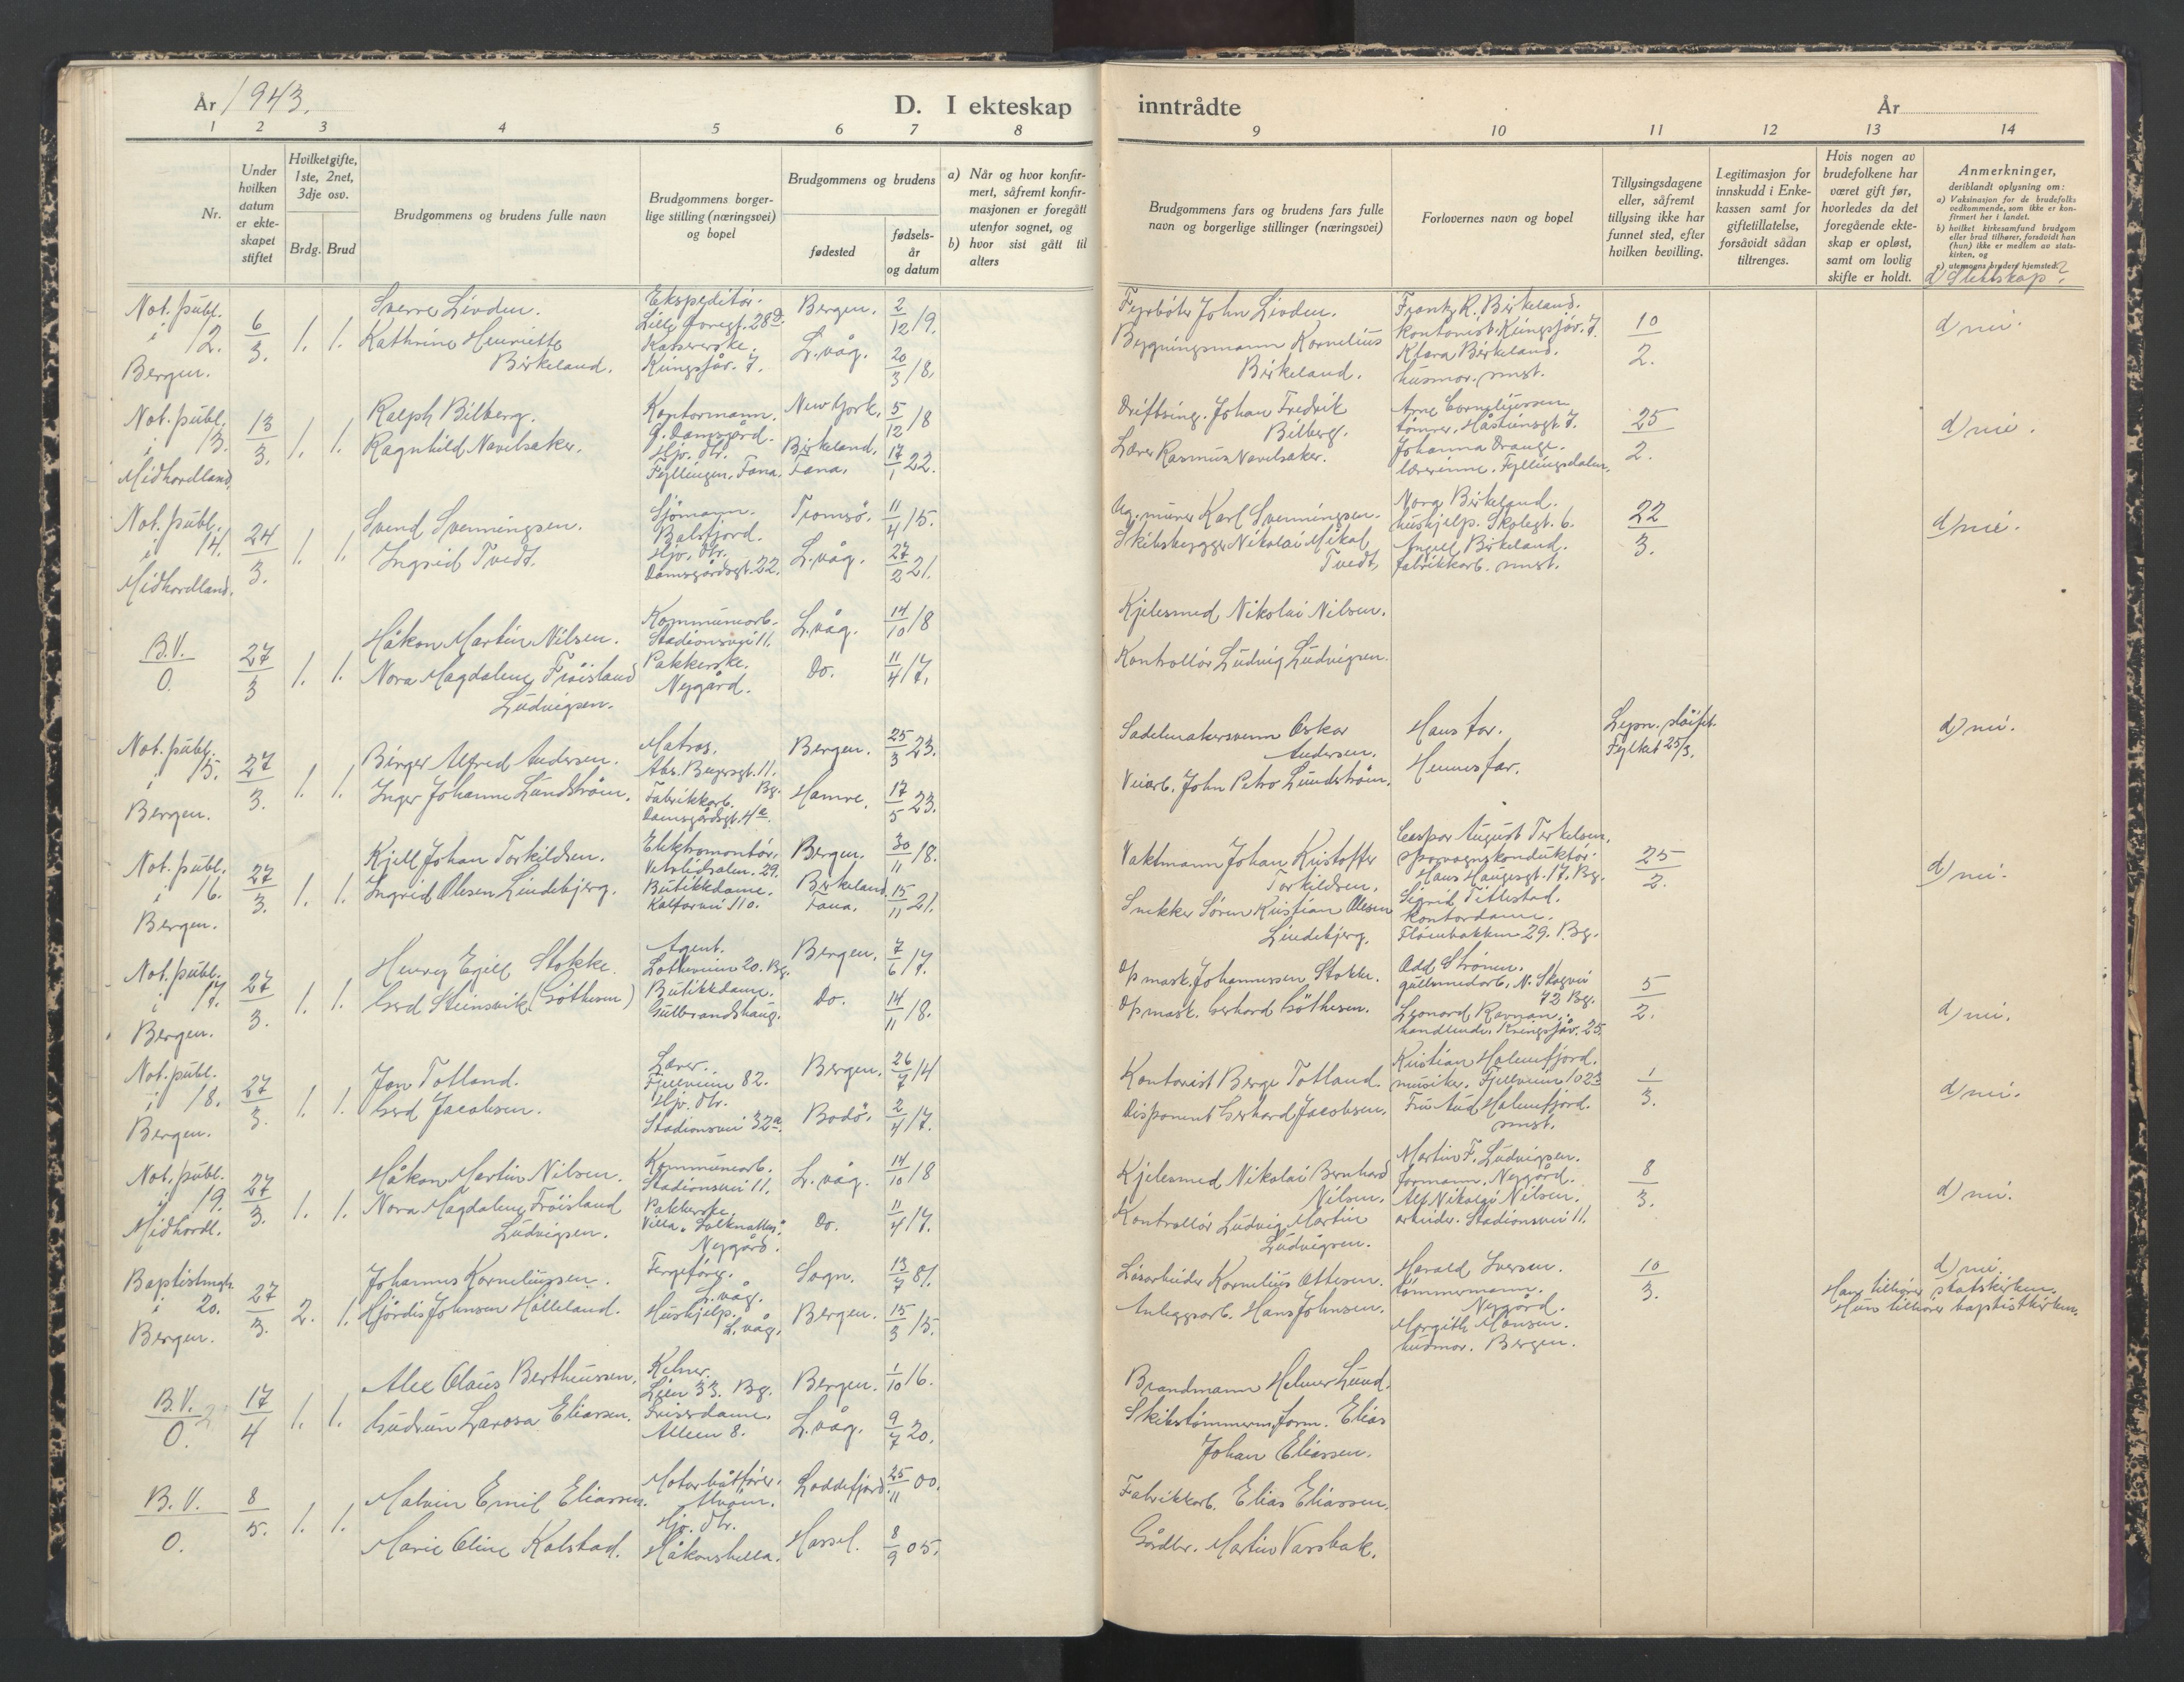 År 1943.
D. I ekteskap inntrådte
År
1 2 3 4 5 6 7 8 9 10 11 12 13 14
Nr.
Under hvilken datum er ekteskapet stiftet
Hvilket gifte, 1ste, 2net, 3dje osv.
Brdg. Brud
Brudgommens og brudens fulle navn
Brudgommens borgerlige stilling (næringsvei) og bopel
Brudgommens og brudens
fødested
fødselsår og datum
a) Når og hvor konfirmert, såfremt konfirmasjonen er foregått utenfor sognet, og
b) hvor sist gått til alters
Brudgommens fars og brudens fars fulle navn og borgerlige stillinger (næringsvei)
Forlovernes navn og bopel
Tillysingsdagene eller, såfremt tillysing ikke har funnet sted, efter hvilken bevilling.
Legitimasjon for innskudd i Enkekassen samt for giftetillatelse, forsåvidt sådan tiltrenges.
Hvis nogen av brudefolkene har været gift før, hvorledes da det foregående ekteskap er opløst, samt om lovlig skifte er holdt.
Anmerkninger,
deriblandt oplysning om:
a) Vaksinasjon for de brudefolks vedkommende, som ikke er konfirmert her i landet.
b) hvilket kirkesamfund brudgom eller brud tilhører, forsåvidt han (hun) ikke er medlem av statskirken, og
c) utensogns bruders hjemsted.
d) Slektskap?
Not. publ. i 12. Bergen.
6/3. 1. 1.
Sverre Livden.
Kathrine Henriette Birkeland.
Ekspeditør.
Lille Øvregt. 28
Kassererske.
Kringsjåv. 7.
Bergen. 2/12 19.
L.våg. 20/3 18.
Fyrbøter John Livden.
Bygningsmann Kornelius Birkeland.
Frantz R. Birkeland.
kontorist. Kringsjåv. 7.
Klara Birkeland.
husmor. smst.
10/2.
d) nei.
Not. publ. i 13. Midhordland.
13/3. 1. 1.
Ralph Bilberg.
Ragnhild Navelsaker.
Kontormann.
G. Damsgård.
Hjv. dtr.
Fyllingen. Fana.
New York. 5/12 18
Birkeland, Fana. 17/1 22.
Driftsing. Johan Fredrik Bilberg.
Lærer Rasmus Navelsaker.
Arne Corneliussen
tømrer. Håsteinsgt. 7.
Johanna Drange.
lærerinne. Fyllingsdalen.
25/2.
d) nei.
Not. publ. i 14. Midhordland.
24/3. 1. 1.
Svend Svenningsen.
Ingrid Tvedt.
Sjømann.
Balsfjord.
Hjv. dtr.
Damsgårdsgt. 22.
Tromsø. 11/4 15.
L.våg. 27/2 21.
murer Karl Svenningsen.
Skibsbygger Nikolai Mikal Tvedt,
Nora Birkeland.
hushjelp. Skolegt. 6.
Birkeland.
fabrikkarb. smst.
22/3.
d) nei.
B.V./0.
27/3 1. 1.
Håkon Martin Nilsen.
Nora Magdalene Frøisland Ludvigsen.
Kommunearb.
Stadionsvei 11.
Pakkerske.
Nygård.
L.våg. 14/10 18
Do. 11/4 17.
Kjelesmed Nikolai Nilsen.
Kontrollør Ludvig Ludvigsen.
Not. publ. i 15. Bergen.
27/3. 1. 1.
Birger Alfred Andersen.
Inger Johanne Lundstrøm.
Matros.
Abs. Beyersgt. 11. Bg.
Fabrikkarb.
Damsgårdsgt. 4a.
Bergen. 25/3 23.
Hamre. 17/5 23.
Sadelmakersvenn Oskar Andersen.
Veiarb. John Petro Lundstrøm.
Hans far.
Hennes far.
Lysn. sløifet.
Fylket 25/3.
d) nei.
Not. publ. i 16. Bergen.
27/3. 1. 1.
Kjell Johan Torkildsen.
Ingrid Olesen Lindebjerg.
Elektromontør.
Vetrlidsalm. 29.
Butikkdame.
Kalfarvei 110.
Bergen. 30/11 18.
Birkeland, Fana. 15/11 21.
Vaktmann Johan Kristoffer Torkildsen.
Snekker Søren Kristian Olesen Lindebjerg.
Caspar August Terkelsen,
sporvognskonduktør.
Hans Haugesgt. 17. Bg.
Sigrid Titlestad.
kontordame.
Fløenbakken 29. Bg.
25/2.
d) nei.
Not. publ. i 17. Bergen.
27/3. 1. 1.
Henry Egill Stokke.
Gerd Steinsvik (Göthesen)
Agent.
Lotheveien 20. Bg.
Butikkdame.
Gulbrandshaug.
Bergen. 7/6 17.
Do. 14/11 18.
Op mask. Johannessen Stokke.
Op mask. Gerhard Göthesen.
Odd Strønen.
gullsmedarb. N. Skogvei 73 Bg.
Leonard Ravnan.
handlende. Kringsjåv. 25.
5/2.
d) nei.
Not. publ. i 18. Bergen.
27/3. 1. 1.
Jon Totland.
Gerd Jacobsen.
Lærer.
Fjellveien 82.
Hjv. dtr.
Stadionsvei 32a.
Bergen. 26/7 14
Bodø. 2/4 17.
Kontorist Berge Totland.
Disponent Gerhard Jacobsen.
Kristian Holmefjord.
musiker. Fjellveien 102
Fru Aud Holmefjord. smst.
1/3.
d) nei.
Not. publ. i 19. Midhordl.
27/3. 1. 1.
Håkon Martin Nilsen.
Nora Magdalene Frøisland Ludvigsen.
Kommunearb.
Stadionsvei 11.
Pakkerske.
Villa „Solknatten“.
Nygård.
L.våg. 14/10 18
Do. 11/4 17.
Kjelesmed Nikolai Bernhard Nilsen.
Kontrollør Ludvig Martin Ludvigsen.
Martin F. Ludvigsen.
formann. Nygård.
Alf Nikolai Nilsen.
arbeider. Stadionsvei 11.
8/3.
d) nei.
Baptistmgh. i 20. Bergen.
27/3. 2. 1.
Johannes Korneliussen.
Hjørdis Johnsen Hølleland.
Fergefører.
L.våg.
Hushjelp.
L.våg.
Sogn. 13/7 81.
Bergen. 15/3 15.
Løsarbeider Kornelius Ottesen.
Anleggsarb. Hans Johnsen.
Harald Iversen.
tømmermann. Nygård.
Margith Monsen.
husmor. Bergen.
10/3.
d) nei.
Han tilhører statskirken.
Hun tilhører baptistkirken.
B.V./0.
17/4 1. 1.
Alex Olaus Bertheussen.
Gudrun Larosa Eliassen.
Kelner.
Lien 33. Bg.
Friserdame.
Alleen 8.
Bergen. 1/10 16.
L.våg. 9/7 20.
Brandmann Helmer Lund.
Skibstømmerm.form. Elias Johan Eliassen.
B.V./0.
8/5. 1. 1.
Malvin Emil Eliassen.
Marie Oline Kalstad.
Motorbåtfører.
Alvøen.
Hjv. dtr.
Håkonshella.
Loddefjord. 25/11 00.
Hassel. 8/9 05.
Fabrikkarb. Elias Eliassen.
Gårdbr. Martin Varsbak.